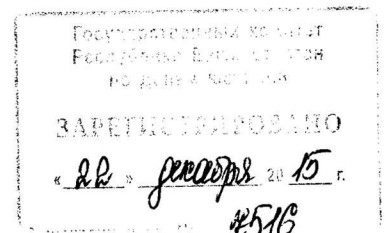 Государственный комитет
Республики Башкортостан
по делам юстиции
ЗАРЕГИСТРИРОВАНО
« 22 » декабря 20 15 г.
7516